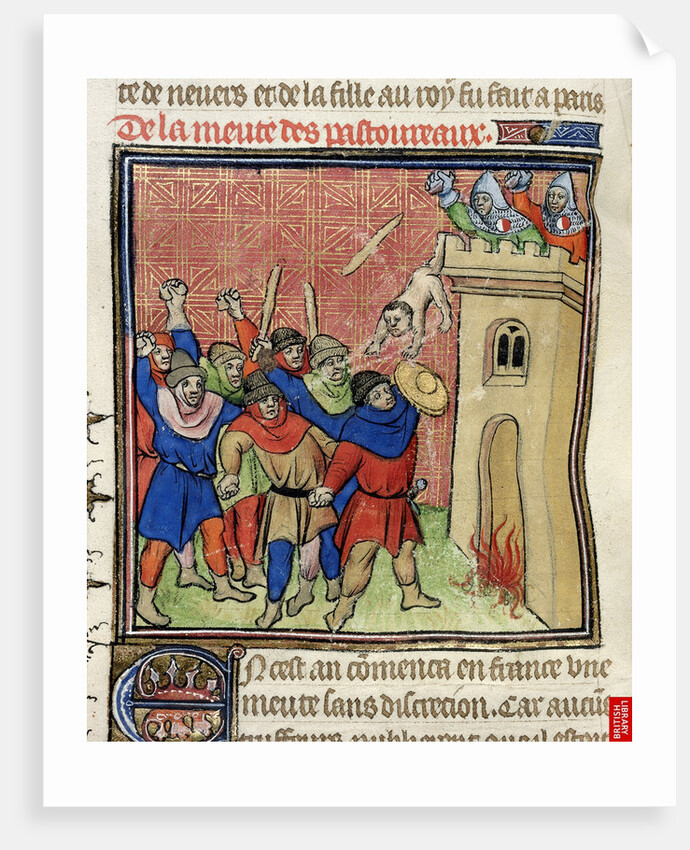 te de nevers et de la fille au roy fu fait a paris
De la meute des pastoureaux.
En cest an cõmenca en france vne
meute sans discrecion. Car aucũs
BRITISH
LIBRARY